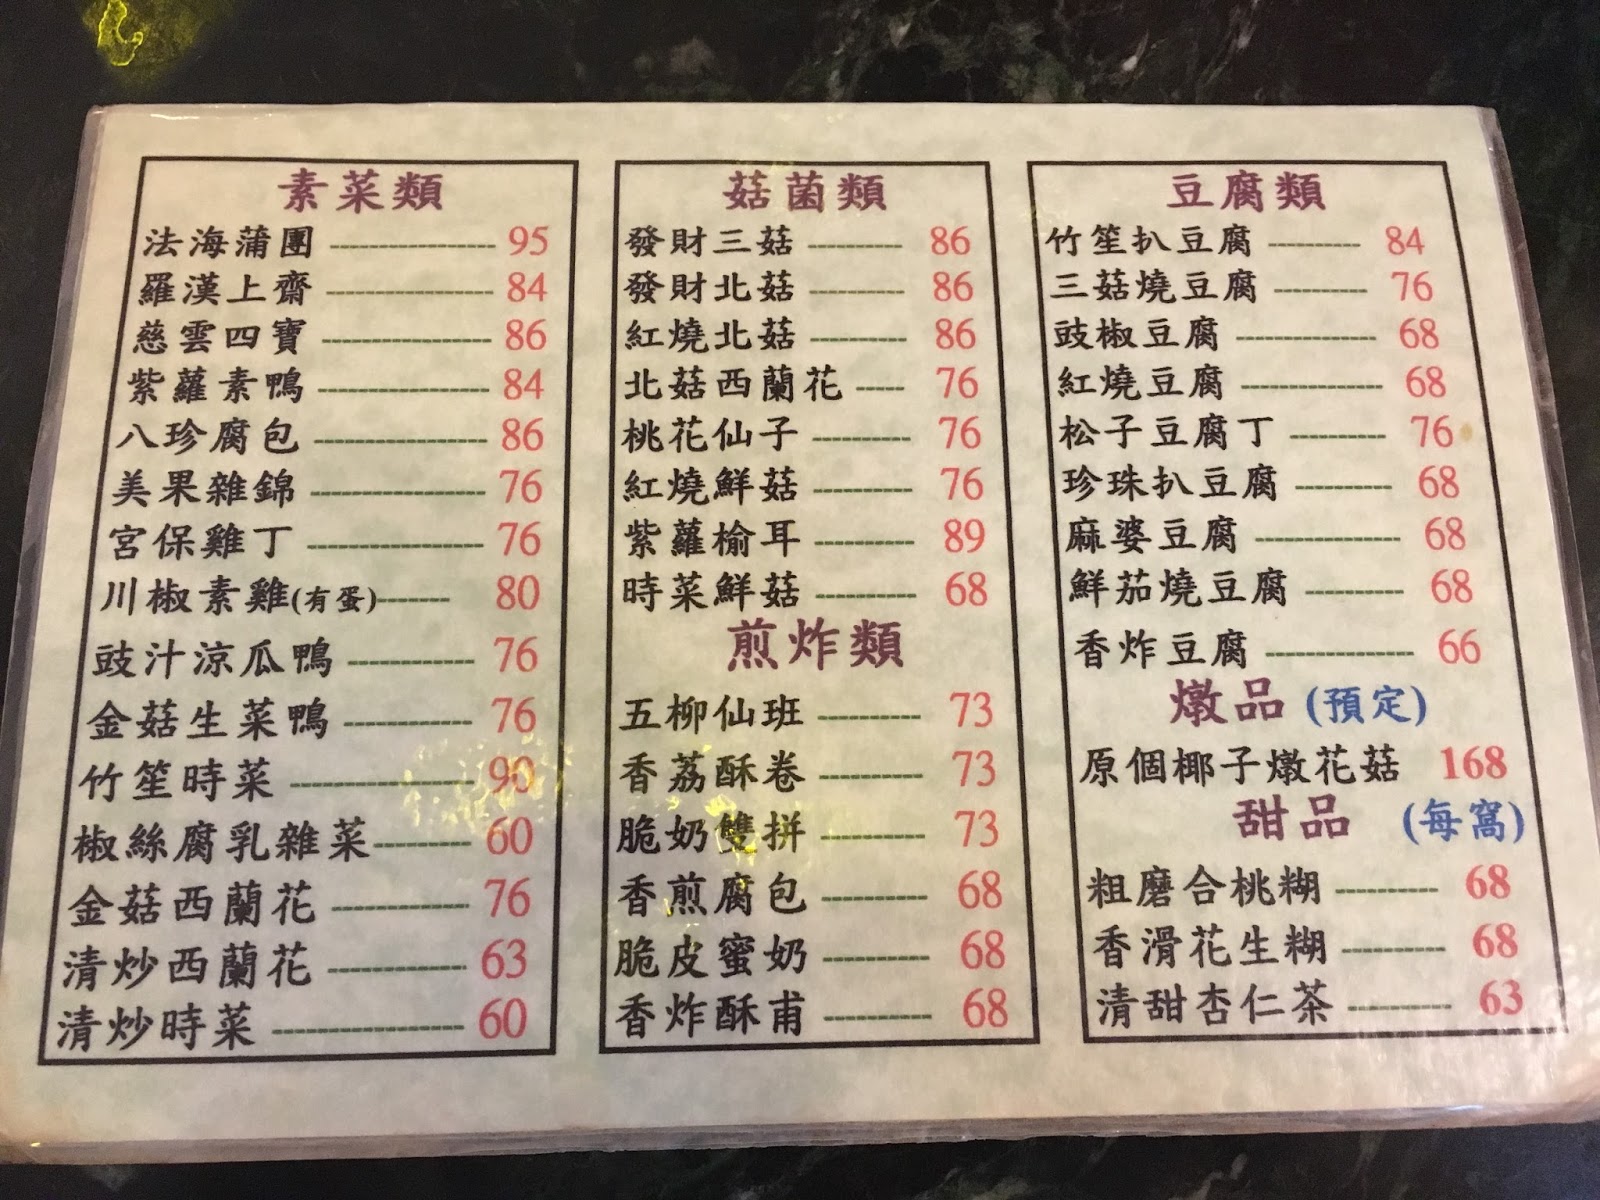 素菜類
法海蒲團 ---------------- 95
羅漢上齋 ---------------- 84
慈雲四寶 ---------------- 86
紫蘿素鴨 ---------------- 84
八珍腐包 ---------------- 86
美果雜錦 ---------------- 76
宮保雞丁 ---------------- 76
川椒素雞(有蛋)------- 80
豉汁涼瓜鴨 ------------ 76
金菇生菜鴨 ------------ 76
竹笙時菜 ---------------- 90
椒絲腐乳雜菜--------- 60
金菇西蘭花 ------------ 76
清炒西蘭花 ------------ 63
清炒時菜 ---------------- 60
菇菌類
發財三菇 ---------- 86
發財北菇 ---------- 86
紅燒北菇 ---------- 86
北菇西蘭花 ----- 76
桃花仙子 ---------- 76
紅燒鮮菇 ---------- 76
紫蘿榆耳 ---------- 89
時菜鮮菇 ---------- 68
煎炸類
五柳仙班 ---------- 73
香荔酥卷 ---------- 73
脆奶雙拼 ---------- 73
香煎腐包 ---------- 68
脆皮蜜奶 ---------- 68
香炸酥甫 ---------- 68
豆腐類
竹笙扒豆腐 --------- 84
三菇燒豆腐 --------- 76
豉椒豆腐 -------------- 68
紅燒豆腐 -------------- 68
松子豆腐丁 --------- 76
珍珠扒豆腐 --------- 68
麻婆豆腐 -------------- 68
鮮茄燒豆腐 --------- 68
香炸豆腐 -------------- 66
燉品 (預定)
原個椰子燉花菇 168
甜品 (每窩)
粗磨合桃糊 --------- 68
香滑花生糊 --------- 68
清甜杏仁茶 --------- 63